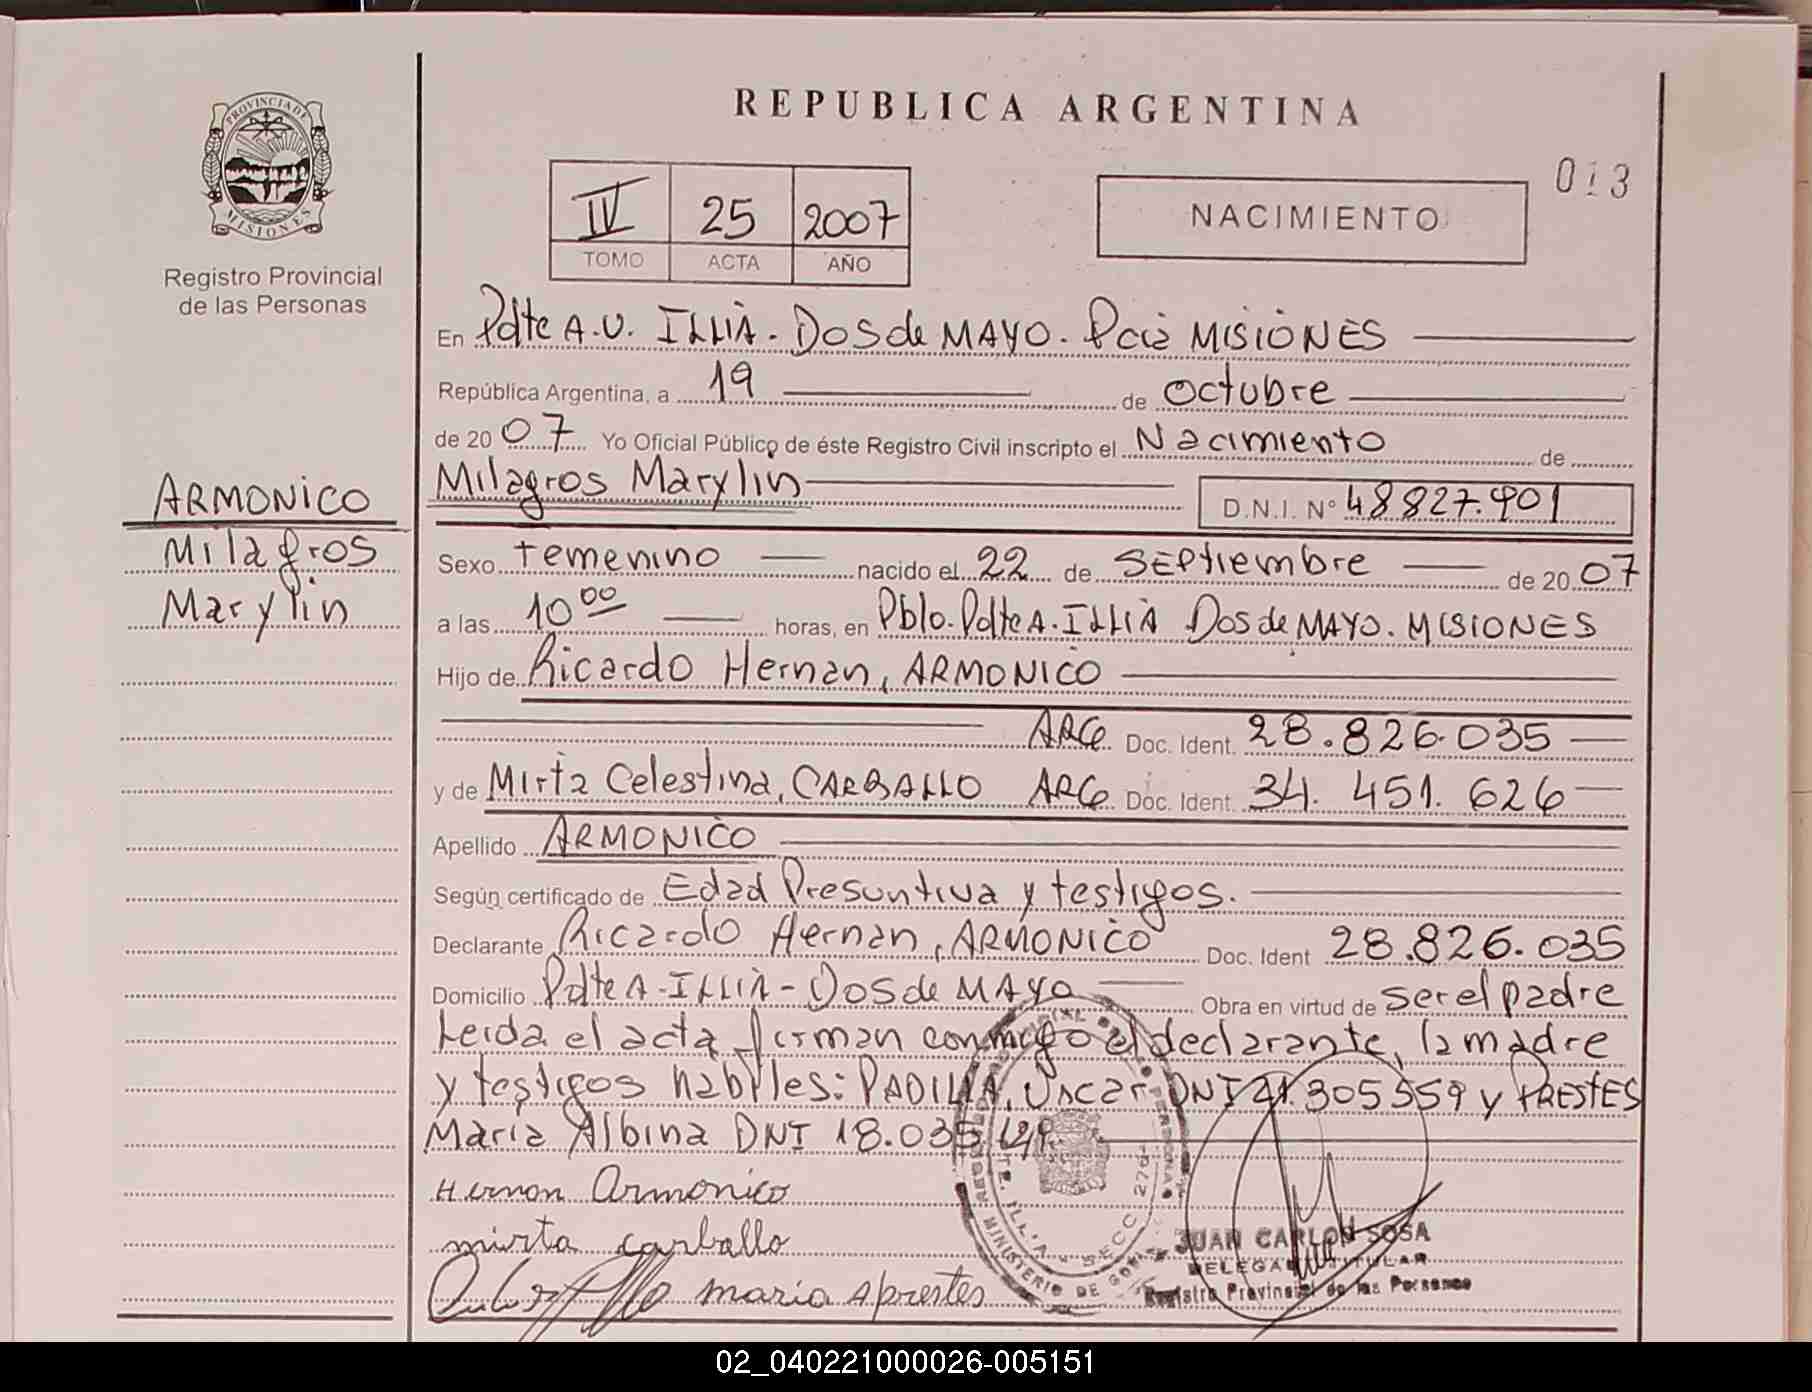 REPUBLICA ARGENTINA
PROVINCIA DE
MISIONES
Registro Provincial
de las Personas
IV 25 2007
TOMO ACTA AÑO
NACIMIENTO
013
En Pdte A.U. ILLIA. Dos de MAYO. Pcia MISIONES
República Argentina, a 19 de Octubre
de 2007 Yo Oficial Público de éste Registro Civil inscripto el Nacimiento de
Milagros Marylin D.N.I. N° 48827.901
ARMONICO
Milagros
Marylin
Sexo Femenino nacido el 22 de SEptiembre de 2007
a las 10 00 horas, en Pblo. Pdte A. ILLIA Dos de MAYO. MISIONES
Hijo de Ricardo Hernan, ARMONICO
ARG Doc. Ident. 28.826.035
y de Mirta Celestina, CARBALLO ARG Doc. Ident. 34.451.626
Apellido ARMONICO
Según certificado de Edad Presuntiva y testigos.
Declarante Ricardo Hernan, ARMONICO Doc. Ident 28.826.035
Domicilio Pdte A. ILLIA - Dos de MAYO Obra en virtud de ser el padre
Leida el acta firman conmigo el declarante, la madre
y testigos habiles: PADILLA, Oscar DNI 21.305559 y PRESTES
Maria Albina DNI 18.035
Hernan Armonico
mirta carballo
maria a prestes
MINISTERIO DE
SECC 276
JUAN CARLOS SOSA
DELEGADO TITULAR
Registro Provincial de las Personas
02_040221000026-005151